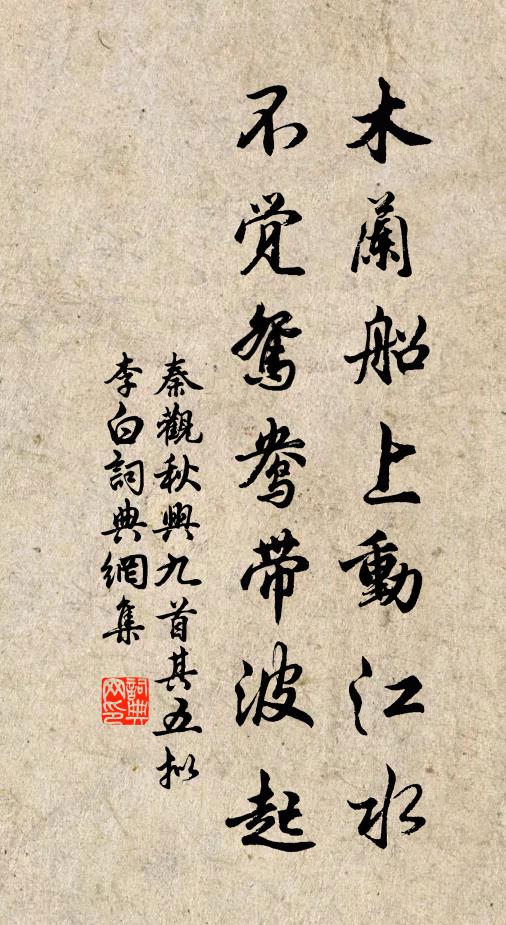 木蘭船上動江水
不覚鴛鴦带波起
秦觀秋興九首其五拟
李白詞典網集
詞典
网印